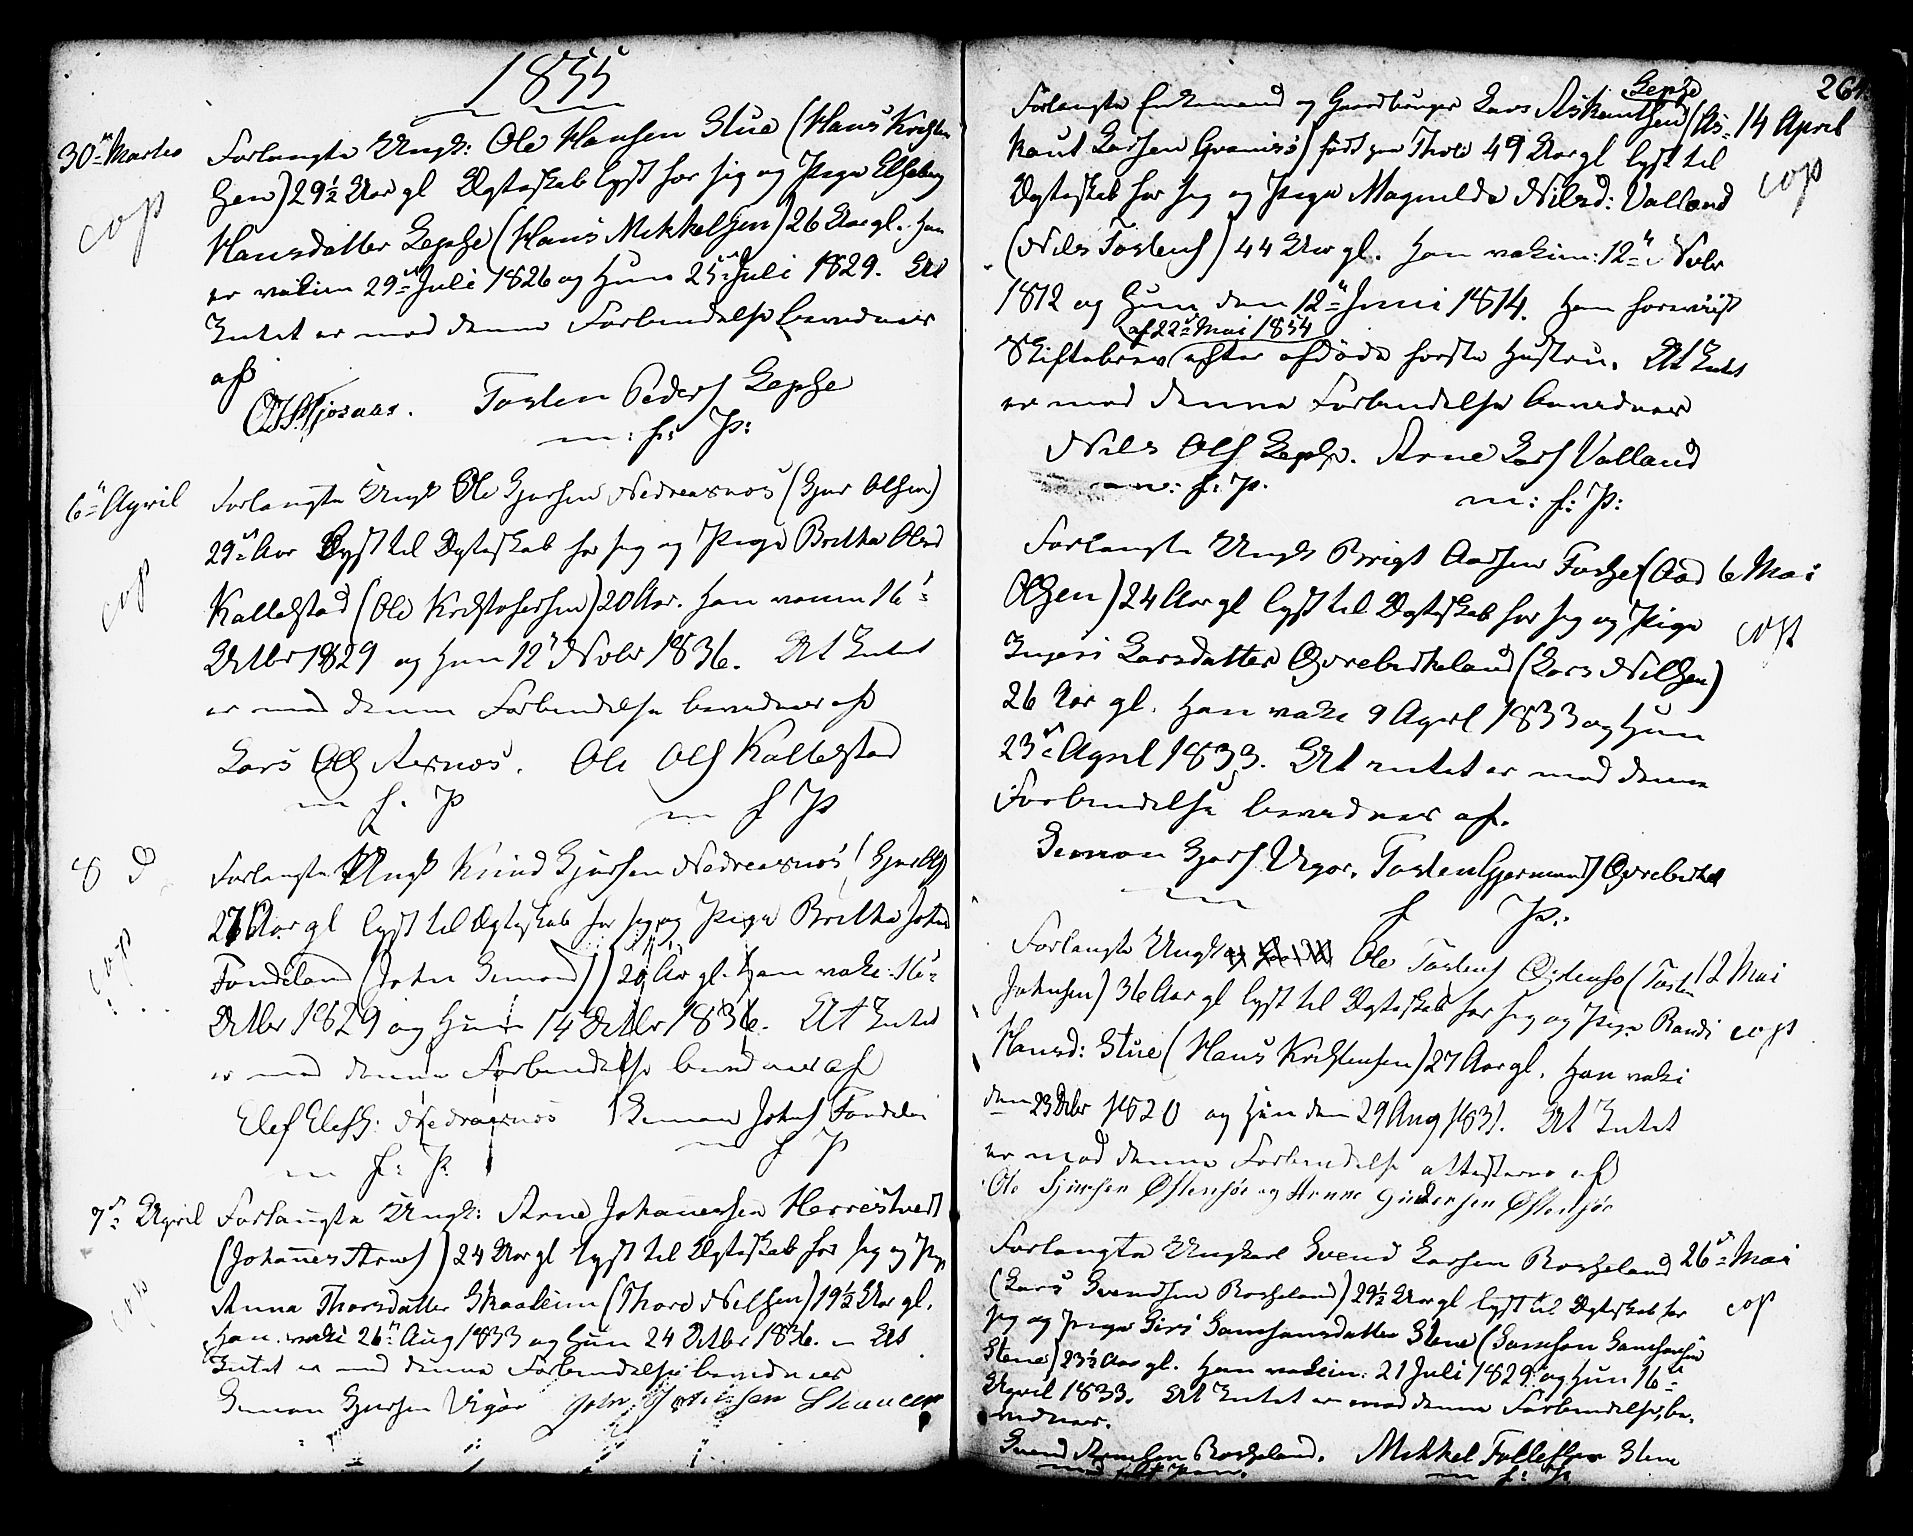 1855
30te Martio Forlangte Ungk: Ole Hansen Stue (Hans Kristen
sen) 29½ Aar gl Ægteskab lyst for sig og Pige Elseberg
cop
Hansdatter Lepsøe (Hans Mikkelsen) 26 Aar gl. Han
er vakin 29de Juli 1826 og Hun 25de Juli 1829. At
Intet er mod denne Forbindelse bevidner
af
Torsten Peders Lepsøe
m: f: P:
6te April Forlangte Ungk Ole Gjersen Nedreaxnos (Gjer Olsen)
29de Aar Lyst til Ægteskab for sig og Pige Britha Olsd
cop
Kallestad (Ole Kristophersen) 20 Aar. Han vaccin 16
Octbr 1829 og Hun 12 Novbr 1836. At Intet
er mod denne Forbindelse bevidner af
Lars Ols Axnos. Ole Ols Kallestad
m f. P m f P
8 d Forlangte Ungk Knud Gjersen Nedreaxnos (Gjer Ols)
27 Aar gl lyst til Ægteskab for sig og Pige Britha Johns
cop
Fondeland (John Simons) 20 Aar gl. Han vake. 16
Octbr 1829 og Hun 14 Octbr 1836. At Intet
er mod denne Forbindelse bevidner af
Elef Elefs: Nedreaxnos Simon Johs Fondelan
m f: P. m f P
7de April Forlangte Ungk: Arne Johannessen Herrestvedt
(Johannes Arnes) 24 Aar gl lyst til Ægteskab for sig og Pige
cop
Anna Thorsdatter Skaaleim (Thore Nilsen) 19½ Aar gl.
Han vake 26de Aug 1833 og Hun 24 Octbr 1836. At
Intet er mod denne Forbindelse bevidner
Simon Gjersen Vigør
264
Lepsøe
Forlangte Enkemand og Gaardbruger Lars Askautsen (As- 14 April
kaut Larsen) født 49 Aar gl lyst til
cop
Ægteskab for sig og Pige Magnilde Nilsd: Valland
(Nils Tostens) 44 Aar gl. Han vakin: 12te Novbr
1812 og Hun den 12te Juni 1814. Han foreviist
af 22de Mai 1854
Skiftebrev efter afdøde første Hustru. At Intet
er mod denne Forbindelse bevidner
Nils Ols Lepsøe. Arne Lars Valland
m: f: P. m: f: P:
Forlangte Ungk Brigt Aadsen Fosse (Aad 6 Mai
Olsen) 24 Aar gl lyst til Ægteskab for sig og Pige
cop
Ingeri Larsdatter Øvrebirkeland (Lars Nilsen)
26 Aar gl. Han vake 9 April 1833 og Hun
23de April 1833. At intet er mod denne
Forbindelse bevidner af.
Simon Gjers Vigør. Torsten Gjermunds Øvrebirkel
m f P.:
Forlangte Ungk Ole Tostens Øistensø (Tosten 12 Mai
Johnsen) 36 Aar gl lyst til Ægteskab for sig og Pige Randi cop
Hansd: Stue (Hans Kristensen) 27 Aar gl. Han vake
den 23 Octbr 1820 og Hun den 29 Aug 1831. At Intet
er mod denne Forbindelse attesterer af
Ole Sjursen Østensøe og Arne Østensøe
Forlangte Ungkarl Svend Larsen Rosseland 26de Mai
(Lars Svendsen Rosseland) 29½ Aar gl lyst til Ægteskab for
cop
sig og Pige Siri Samsonsdatter Steine (Samson Samsonsen
Steine) 23½ Aar gl. Han vakin: 21 Juli 1829 og Hun 16de
April 1833. At Intet er mod denne Forbindelse, be-
vidner.
Svend Rosseland. Mikkel Tollefsen Steine
m: f: P.